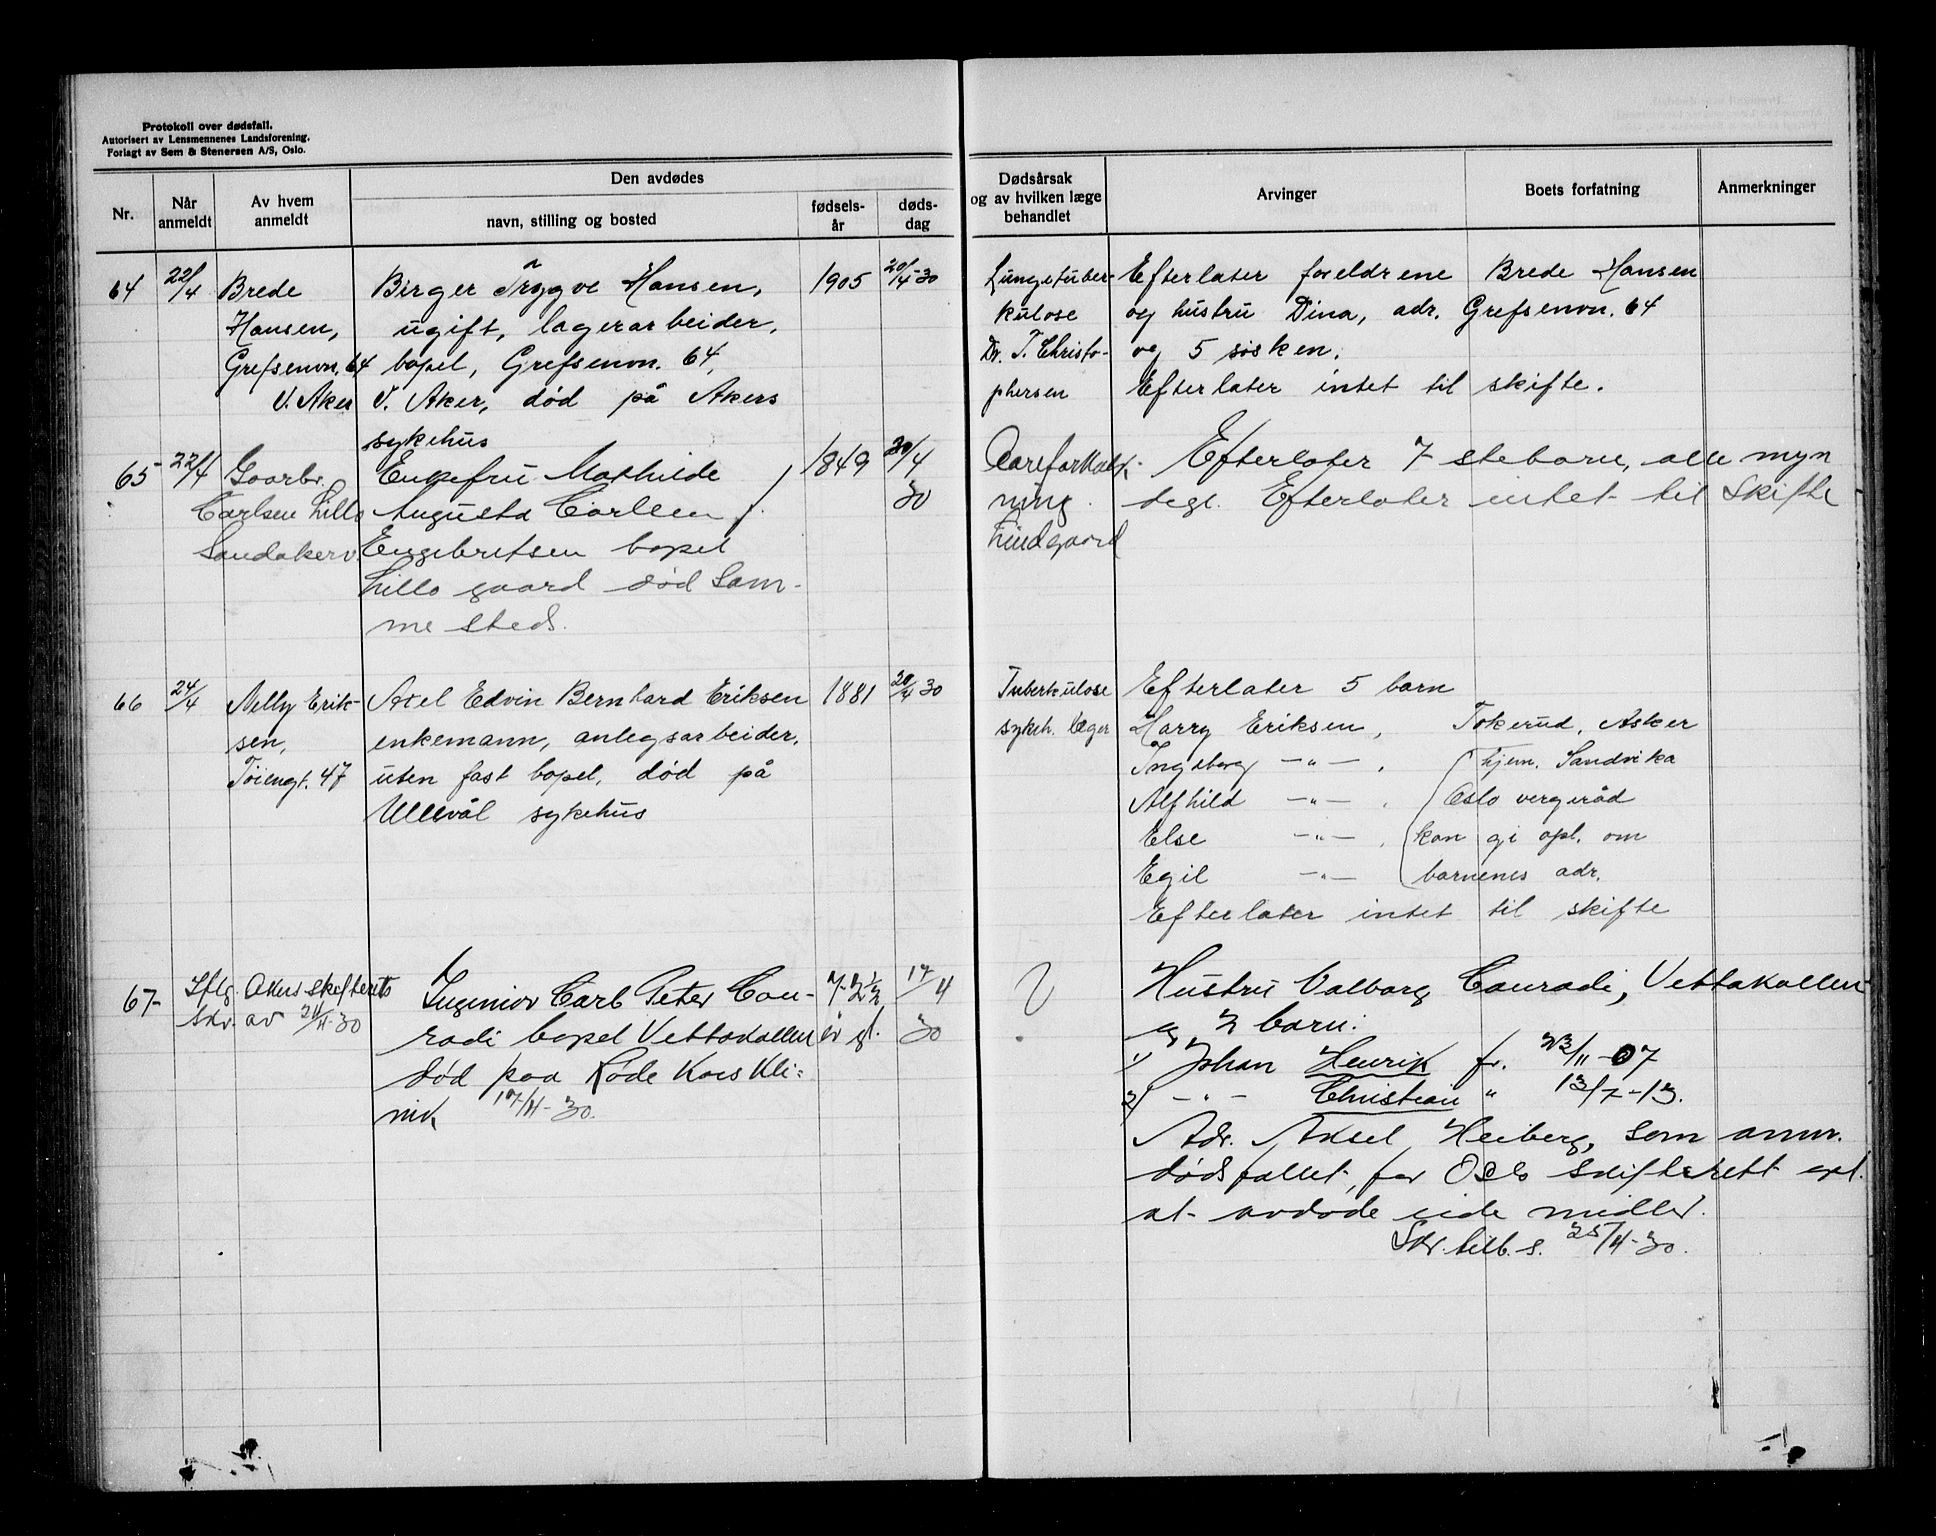 Protokoll over dødsfall.
Autorisert av Lensmennenes Landsforening.
Forlagt av Sem & Stenersen A/S, Oslo.
Nr.
Når anmeldt
Av hvem anmeldt
Den avdødes
navn, stilling og bosted
fødsels-år
døds-dag
Dødsårsak og av hvilken læge behandlet
Arvinger
Boets forfatning
Anmerkninger
64
22/4
Brede
Hansen,
Grefsenvn. 64
V. Aker
Birger Trygve Hansen,
ugift, lagerarbeider,
bopel, Grefsenvn. 64,
V. Aker, død på Akers
sykehus
1905
20/4-30
Lungetuber-
kulose
Dr. T. Christo-
phersen
Efterlater foreldrene Brede Hansen
og hustru Dina, adr. Grefsenvn. 64
og 5 søsken.
Efterlater intet til skifte.
65
22/4
Gaarbr.
Carlsen Lillo
Sandakerv.
Enkefru Mathilde
Augusta Carlsen
Engebretsen bopel
Lillo gaard død Sam-
me steds.
1849
20/4
30
Aareforkalk-
ning.
Lindgaard
Efterlater 7 stebarn, alle myn
dige. Efterlater intet til Skifte
66
24/4
Nelly Erik-
sen,
Tøiengt. 47
Axel Edvin Bernhard Eriksen
enkemann, anlegsarbeider,
uten fast bopel, død på
Ullevål sykehus
1881
20/4 30
Tuberkulose
sykeh. læger
Efterlater 5 barn
Harry Eriksen, Tokerud, Asker
Ingeborg —„— , hjem. Sandvika
Alfhild —„— , Oslo vergeråd
Else —„— , kan gi opl. om
Egil —„— barnenes adr.
Efterlater intet til skifte
67-
Iflg. Akers skifteretts
skr. av 24/4-30
Ingeniør Carl Peter Con-
radi bopel Vettakollen
død paa Røde Kors Kli=
nik 17/4-30.
72 1/2
år gl.
17/4
30
Hustru Valborg Conradi, Vettakollen
og 2 barn:
1) Johan Henrik f. 23/11-07
2) —„— Christian " 13/7-13.
Adv. Axsel Heiberg, som anm.
dødsfallet, for Oslo skifterett opl.
at avdøde eide midler.
Skr. tilb. s. 25/4-30.